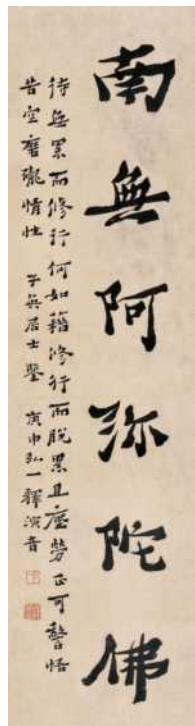 南無阿弥陀佛
待無累而修行何如藉修行而脫累且塵勞正可警悟
苦空磨礲情性　子吳居士鑒　庚申弘一釋演音